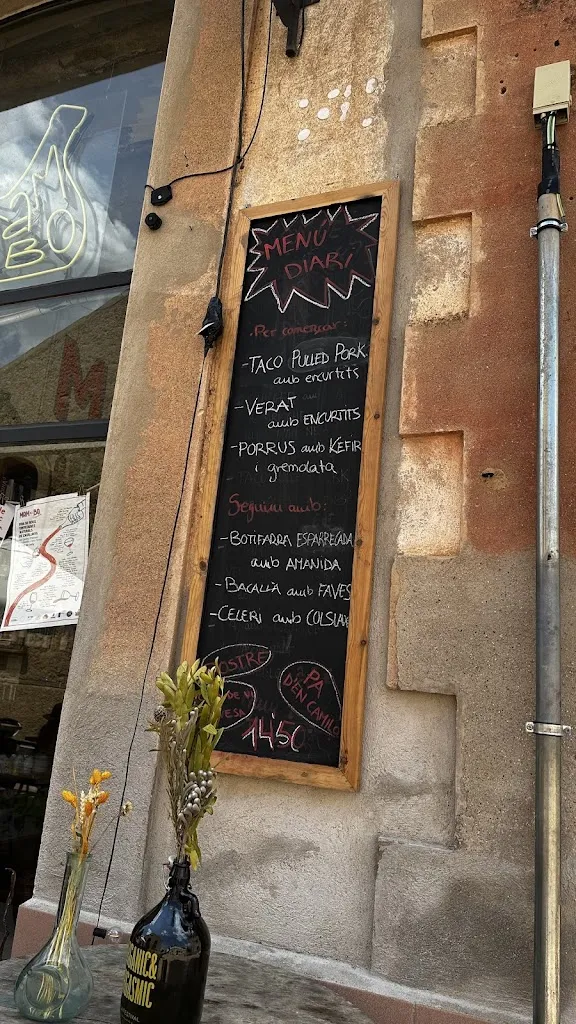 MENÚ
DIARI
·Per començar:
-TACO PULLED PORK
amb encurtits
-VERAT
amb ENCURTITS
-PORRUS amb KEFIR
i gremolata
Seguim amb:
-BOTIFARRA ESPARRECADA
amb AMANIDA
-BACALLÀ amb FAVES
-CELERI amb COLSLAW
PA
D'EN CAMILO
14'50
MAM
BO
M